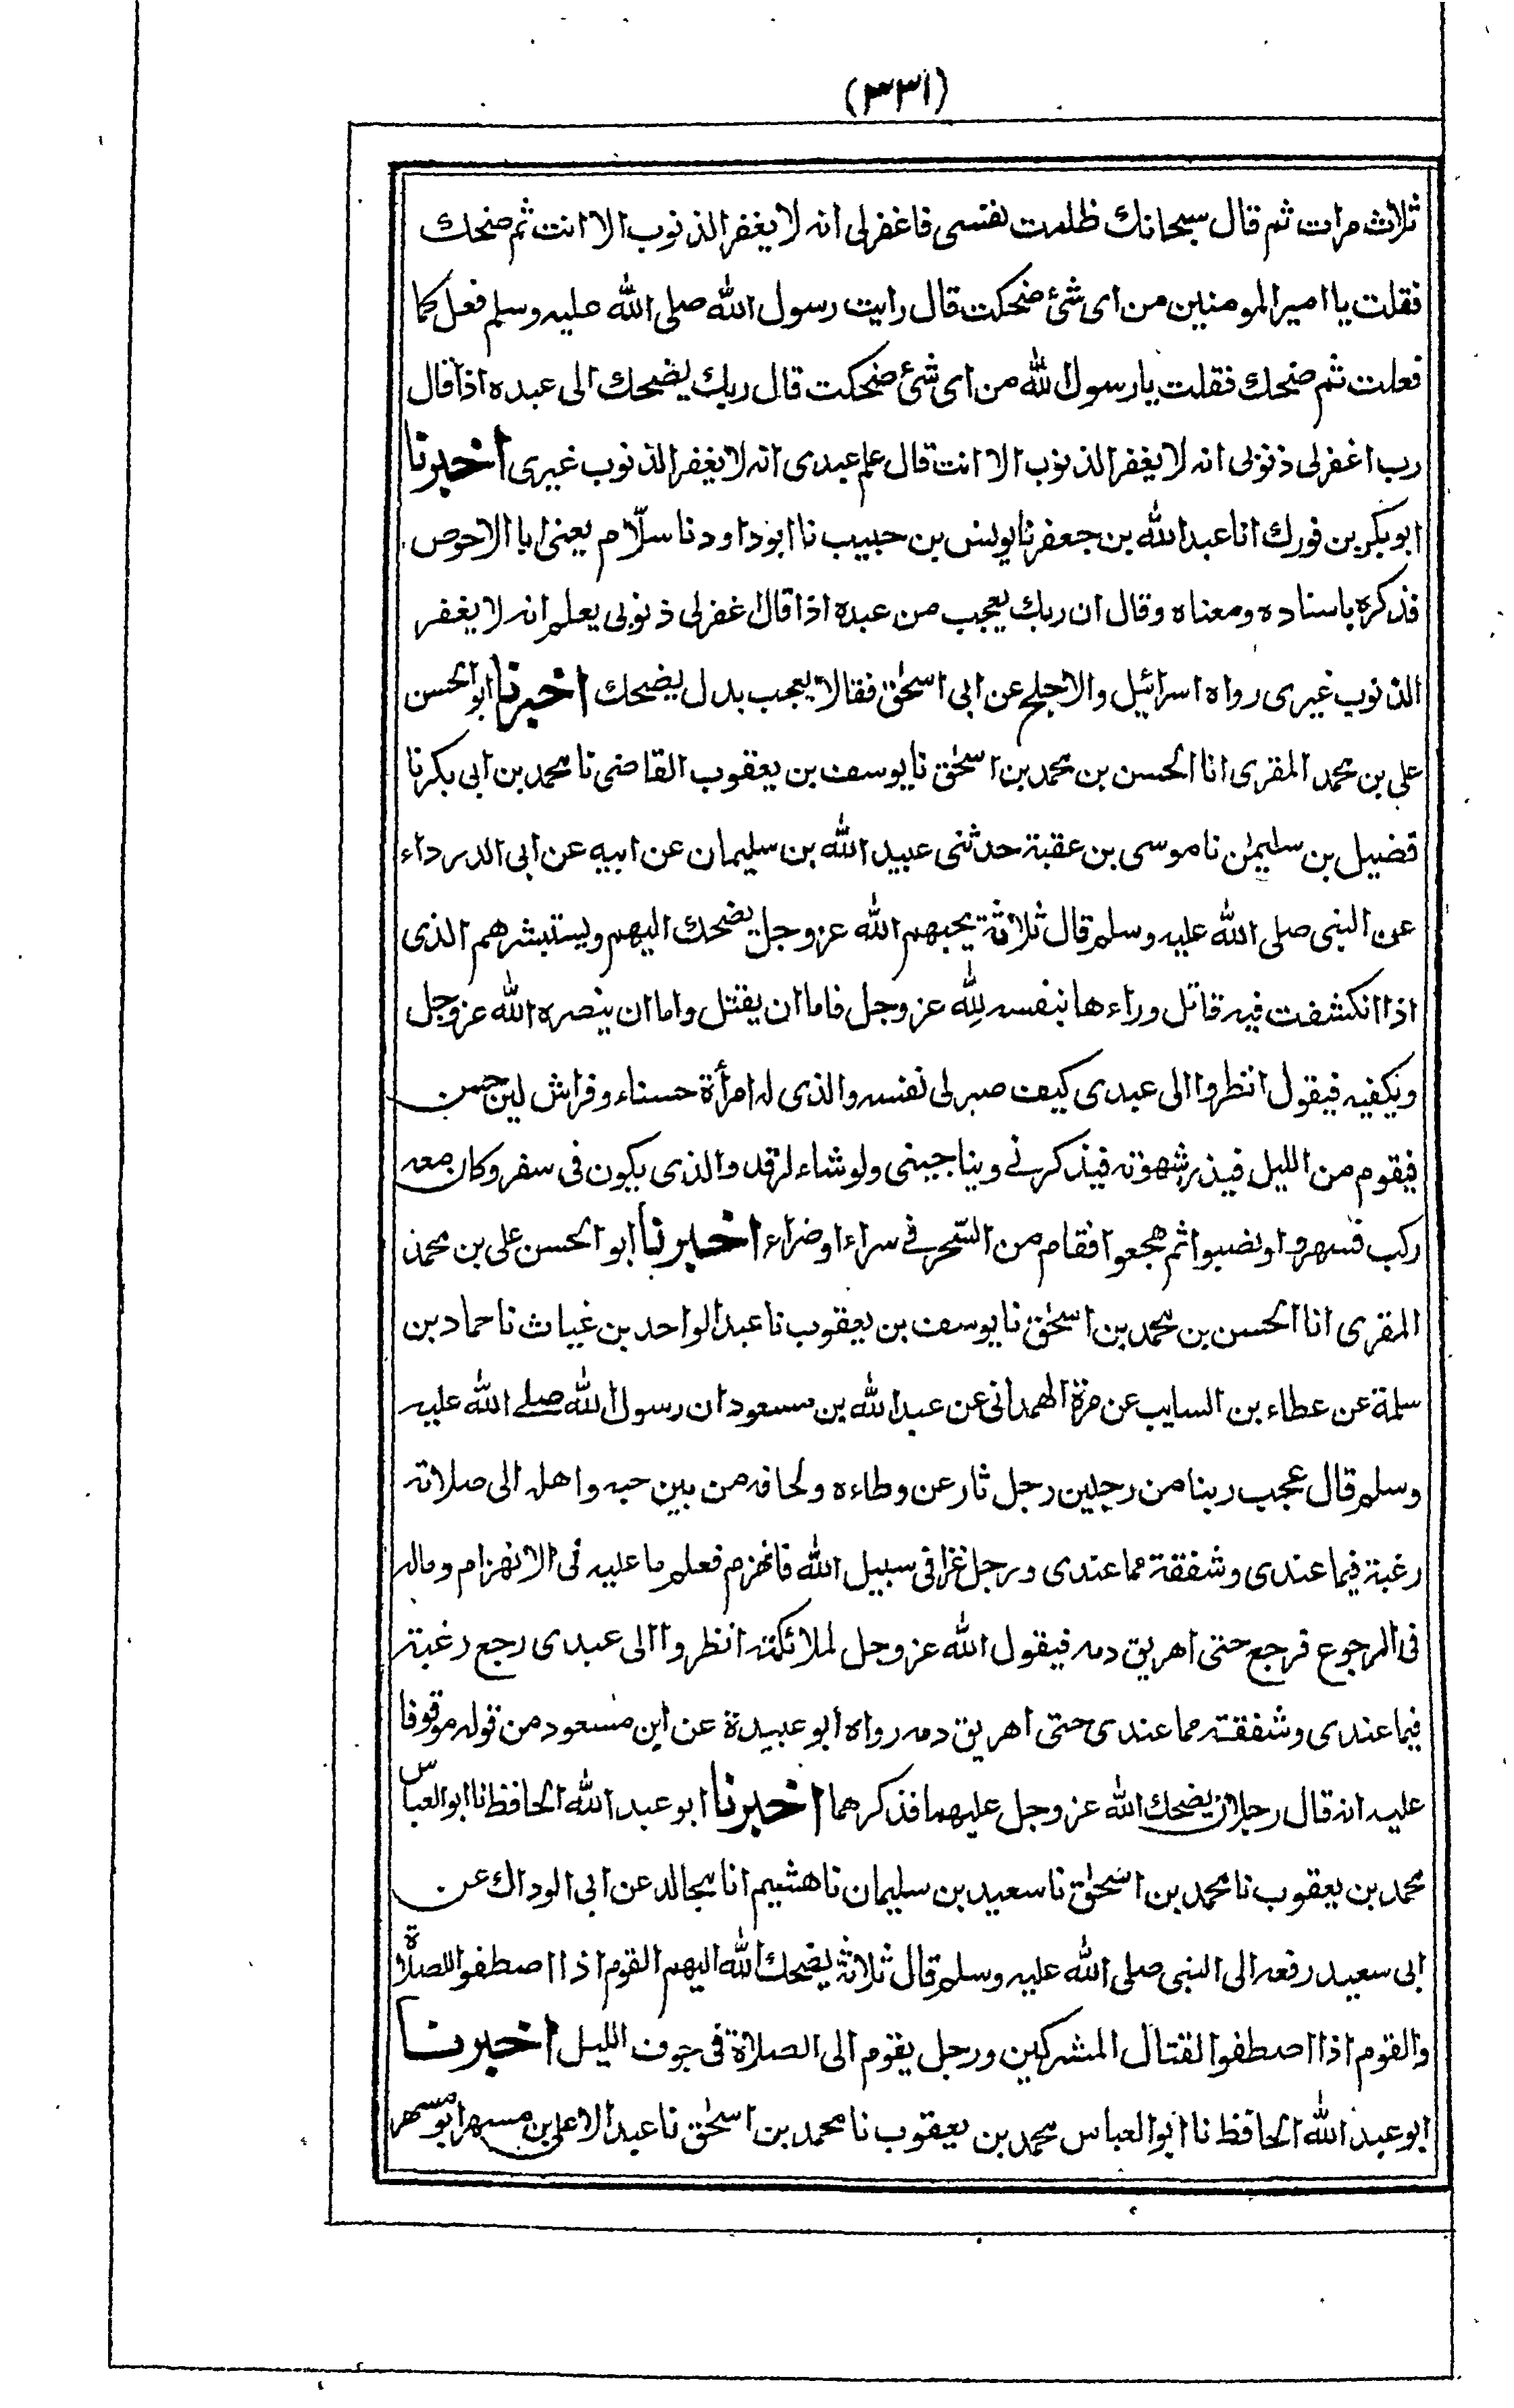 (٣٣١)
ثلاث مرات ثم قال سبحانك ظلمت نفسى فاغفرلى انه لا يغفر الذنوب الا انت ثم ضحك
فقلت يا امير المومنين من اى شئ ضحكت قال رايت رسول الله صلى الله عليه وسلم فعل كما
فعلت ثم ضحك فقلت يا رسول الله من اى شئ ضحكت قال ربك يضحك الى عبده اذا قال
رب اغفرلى ذنوبى انه لا يغفر الذنوب الا انت قال علم عبدى انه لا يغفر الذنوب غيرى اخبرنا
ابوبكر بن فورك انا عبد الله بن جعفر نا يونس بن حبيب نا ابوداود نا سلّام يعنى ابا الاحوص
فذكره باسناده ومعناه وقال ان ربك يعجب من عبده اذا قال اغفرلى ذنوبى يعلم انه لا يغفر
الذنوب غيرى رواه اسرائيل والاجلح عن ابى اسحٰق فقالا يعجب بدل يضحك اخبرنا ابو الحسن
على بن محمد المقرى انا الحسن بن محمد بن اسحٰق نا يوسف بن يعقوب القاضى نا محمد بن ابى بكر نا
فضيل بن سليمٰن نا موسى بن عقبة حدثنى عبيد الله بن سليمان عن ابيه عن ابى الدرداء
عن النبى صلى الله عليه وسلم قال ثلاثة يحبهم الله عزوجل يضحك اليهم ويستبشرهم الذى
اذا انكشفت فيه قاتل وراءها بنفسه لله عزوجل فاما ان يقتل واما ان ينصره الله عزوجل
ويكفيه فيقول انظروا الى عبدى كيف صبرلى نفسه والذى له امرأة حسناء وفراش لين حسن
فيقوم من الليل فيذر شهوته فيذكرنے ويناجينى ولوشاء لرقد والذى يكون فى سفر وكان معه
ركب فسهروا ونصبوا ثم هجعوا فقام من السّحر فے سراء اوضراء اخبرنا ابو الحسن على بن محمد
المقرى انا الحسن بن محمد بن اسحٰق نا يوسف بن يعقوب نا عبد الواحد بن غياث نا حماد بن
سلمة عن عطاء بن السايب عن مرة الهمدانى عن عبد الله بن مسعود ان رسول الله صلے الله عليه
وسلم قال عجب ربنا من رجلين رجل ثار عن وطاءه ولحافه من بين حبه واهله الى صلاته
رغبة فيما عندى وشفقة مما عندى ورجل غزا فى سبيل الله فانهزم فعلم ما عليه فى الانهزام وماله
فى الرجوع فرجع حتى اهريق دمه فيقول الله عزوجل لملائكته انظروا الى عبدى رجع رغبة
فيما عندى وشفقته مما عندى حتى اهريق دمه رواه ابو عبيدة عن ابن مسعود من قوله موقوفا
عليه انه قال رجلان يضحك الله عزوجل عليهما فذكرهما اخبرنا ابو عبد الله الحافظ نا ابو العباس
محمد بن يعقوب نا محمد بن اسحٰق نا سعيد بن سليمان نا هشيم انا مجالد عن ابى الوداك عن
ابى سعيد رفعه الى النبى صلى الله عليه وسلم قال ثلاثة يضحك الله اليهم القوم اذا اصطفوا للصلاة
والقوم اذا اصطفوا لقتال المشركين ورجل يقوم الى الصلاة فى جوف الليل اخبرنا
ابو عبد الله الحافظ نا ابو العباس محمد بن يعقوب نا محمد بن اسحٰق نا عبد الاعلى بن مسهر ابو مسهر